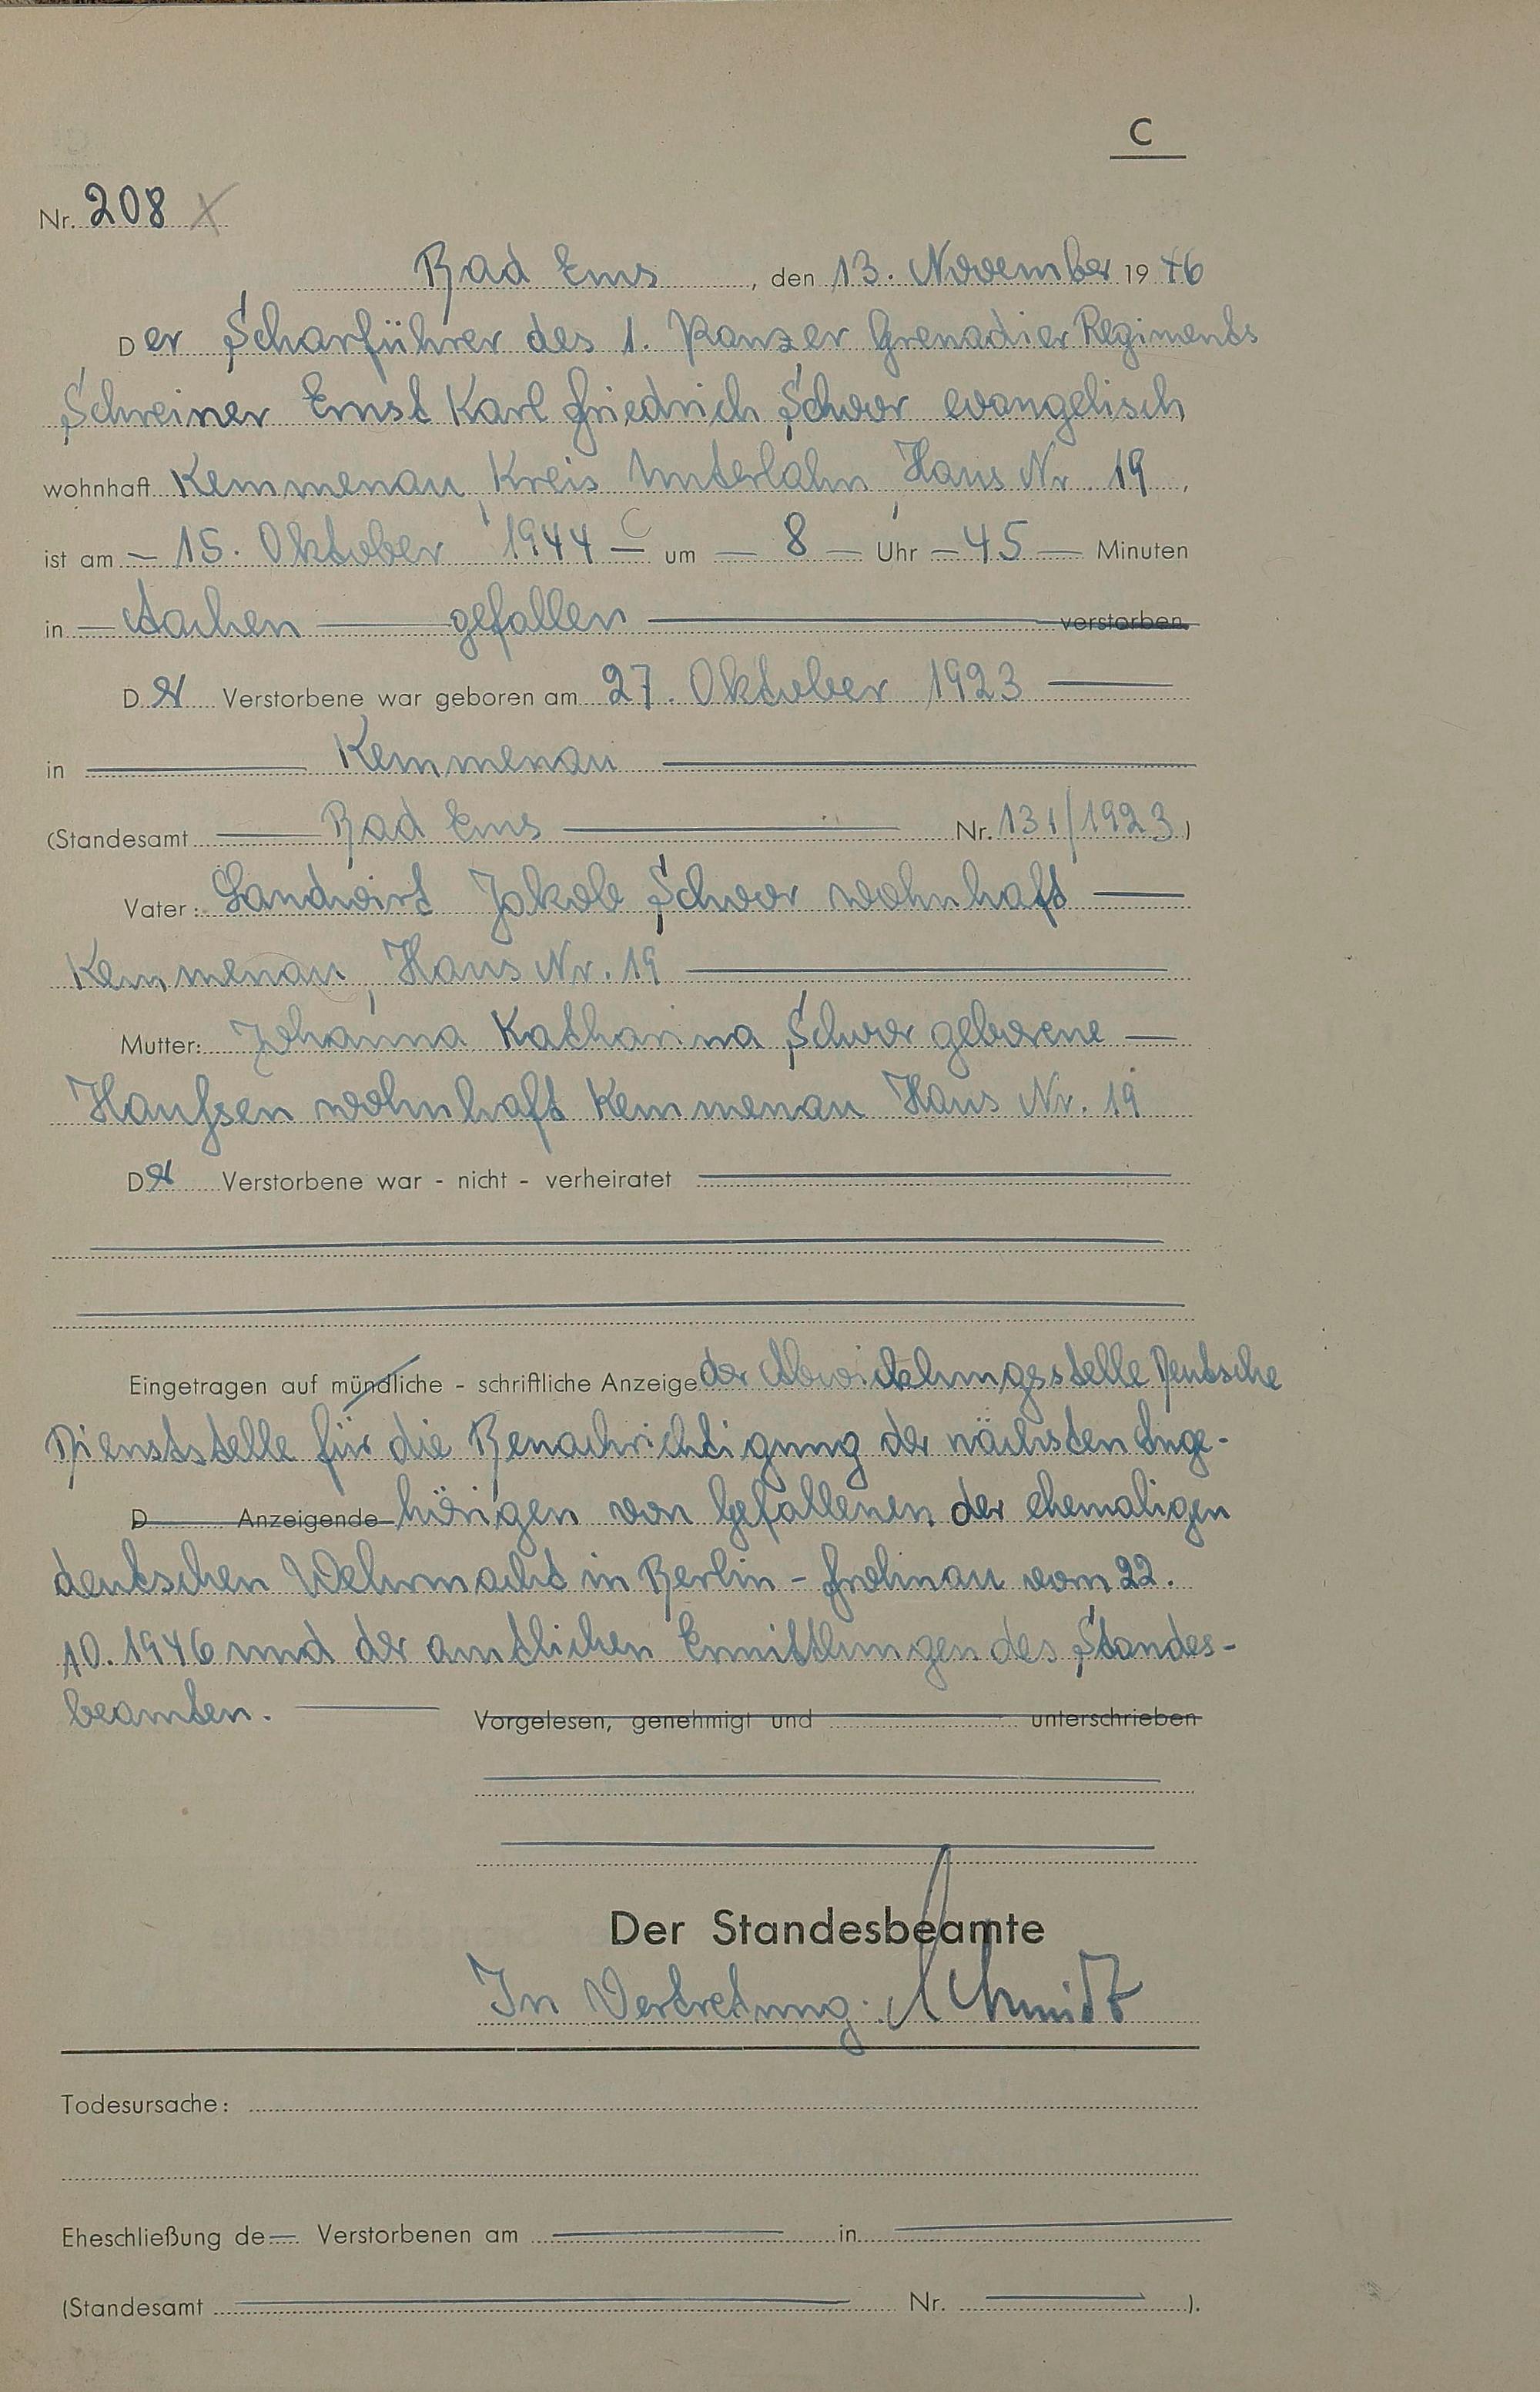 C
Nr. 208 X
Bad Ems, den 13. November 1946
Der Scharführer des 1. Panzer Grenadier Regiments
Schreiner Ernst Karl Friedrich Schwor evangelisch
wohnhaft Kemmenau, Kreis Unterlahn, Haus Nr. 19,
ist am — 15. Oktober 1944 — um — 8 — Uhr — 45 — Minuten
in — Aachen — gefallen — verstorben.
Der Verstorbene war geboren am 27. Oktober 1923 —
in — Kemmenau —
(Standesamt — Bad Ems — Nr. 131/1923)
Vater: Landwirt Jakob Schwor wohnhaft —
Kemmenau, Haus Nr. 19 —
Mutter: Johanna Katharina Schwor geborene —
wohnhaft Kemmenau Haus Nr. 19
Der Verstorbene war - nicht - verheiratet —
Eingetragen auf mündliche - schriftliche Anzeige der Abwicklungsstelle Deutsche
Dienststelle für die Benachrichtigung der nächsten Ange-
D Anzeigende hörigen von Gefallenen der ehemaligen
deutschen Wehrmacht in Berlin - Frohnau vom 22.
10. 1946 und der amtlichen Ermittlungen des Standes-
beamten. — Vorgelesen, genehmigt und unterschrieben
Der Standesbeamte
In Vertretung: Schmidt
Todesursache:
Eheschließung de— Verstorbenen am — in —
(Standesamt — Nr. — ).